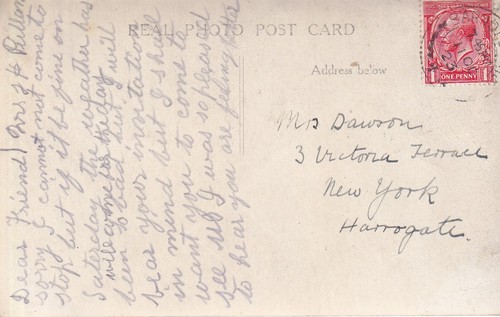 REAL PHOTO POST CARD
Address below
ONE PENNY
Mrs Dawson
3 Victoria Terrace
New York
Harrogate.
Dear Friend
sorry I cannot not come to
stop but if it be fine on
Saterday the weather has
will come for the day
been so bad but I will
bear your invitation
in mind but I shall
want you to come to
see us I was so pleased
to hear you are feeling better